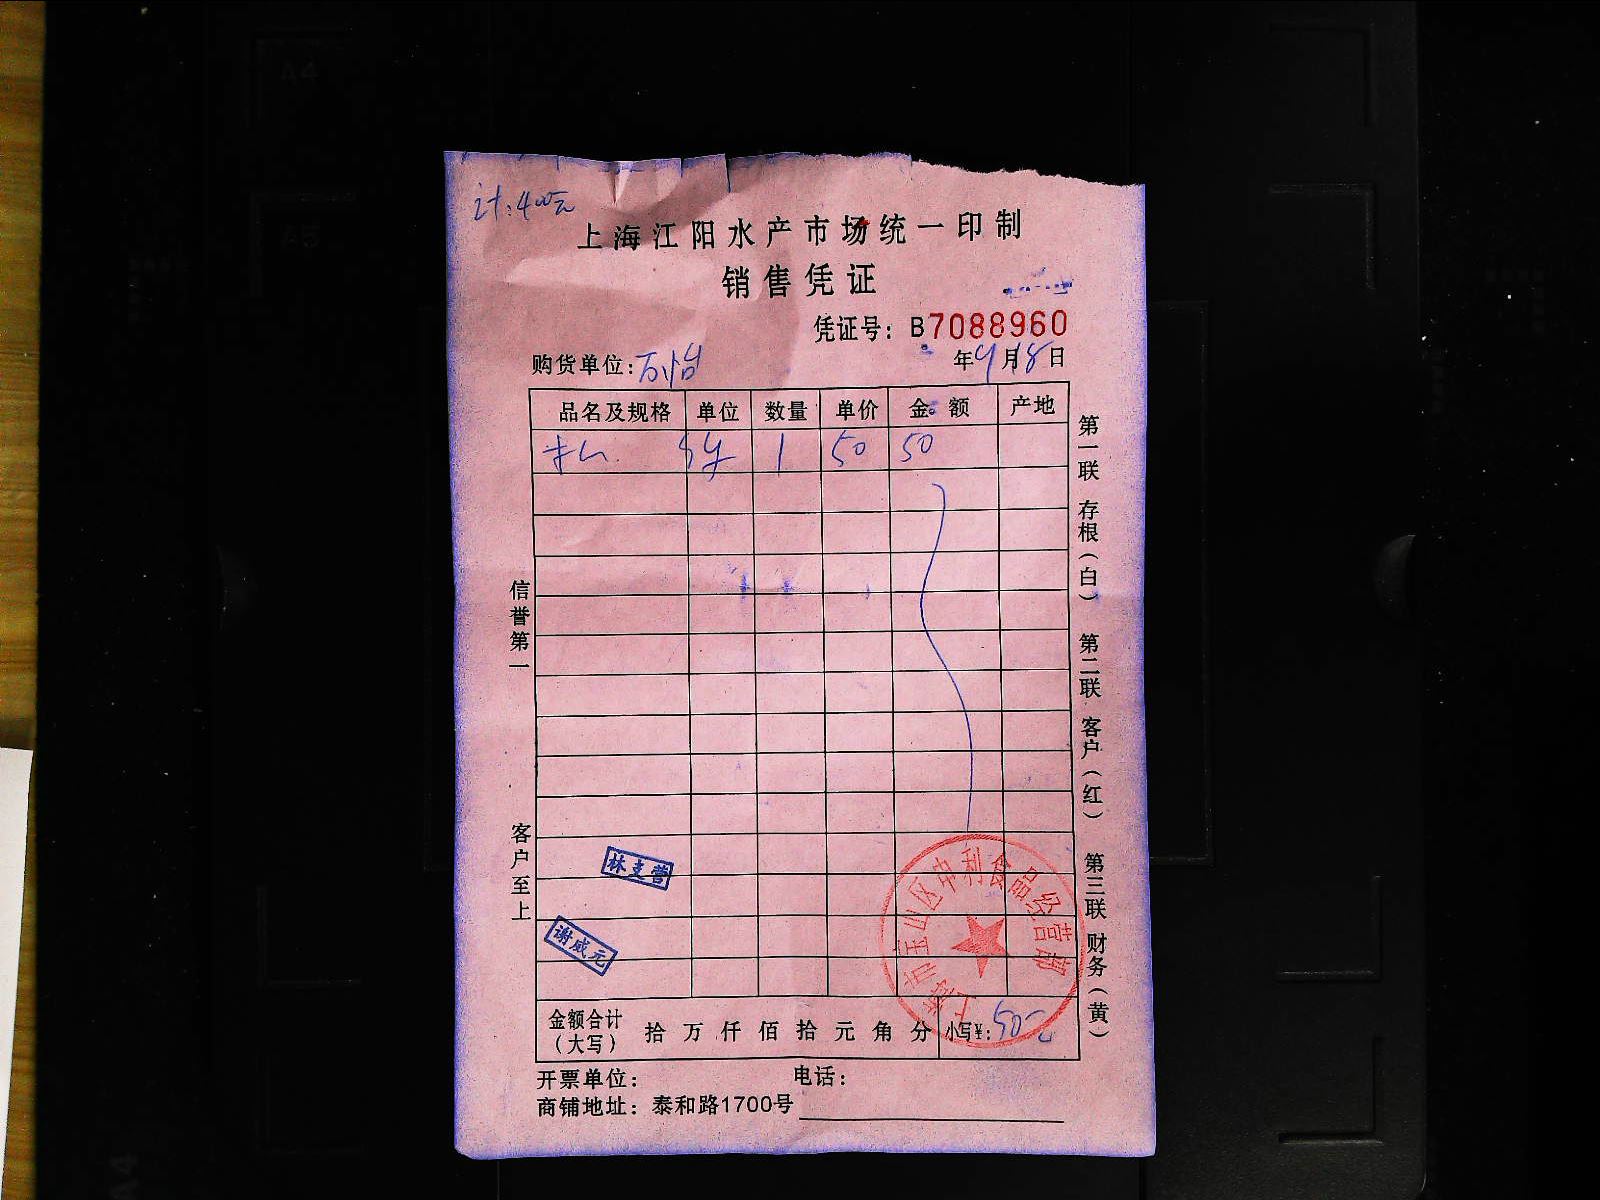 计:400元
上海江阳水产市场统一印制
销售凭证
凭证号: B7088960
购货单位:万怡
年9月18日
品名及规格 单位 数量 单价 金额 产地
1 50 50
信誉第一
客户至上
第一联 存根(白) 第二联 客户(红) 第三联 财务(黄)
林支营
谢威元
上海市宝山区中利食品经营部
金额合计(大写) 拾万仟佰拾元角分 小写¥:50元
开票单位: 电话:
商铺地址: 泰和路1700号